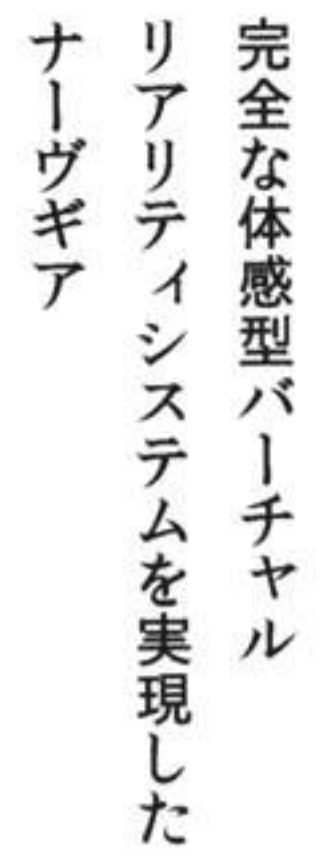 完全な体感型バーチャル
リアリティシステムを実現した
ナーヴギア